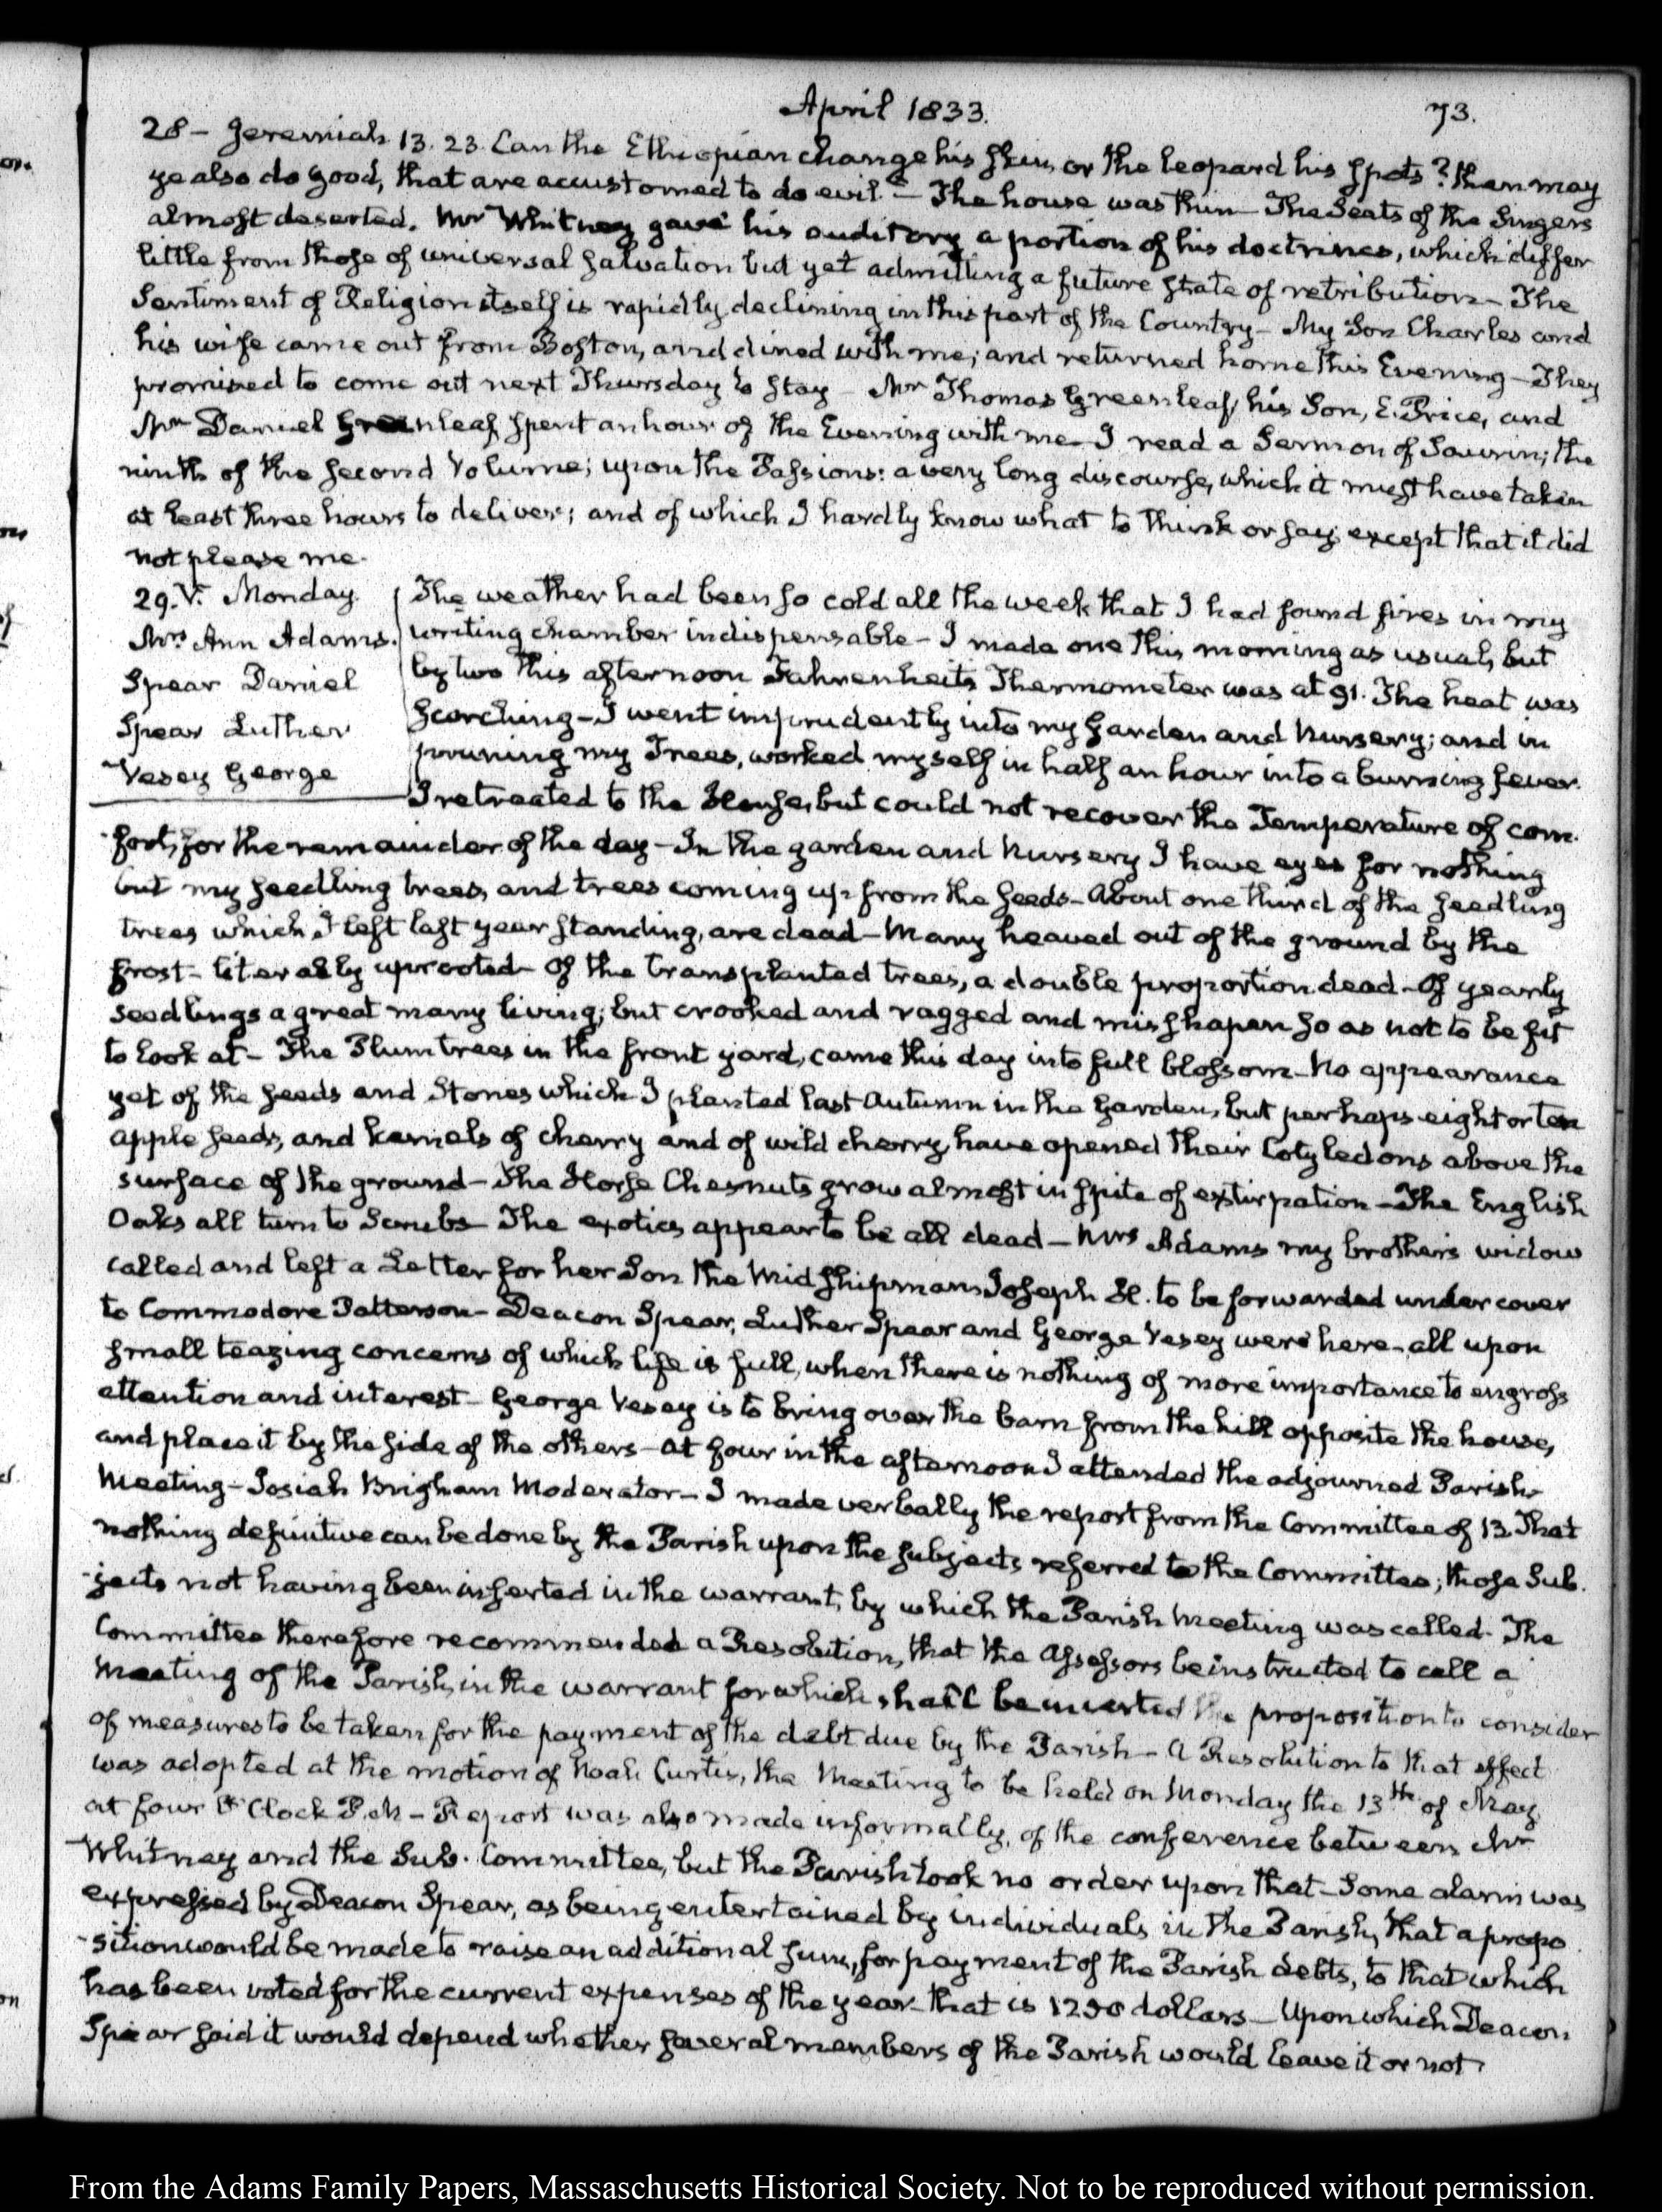 April 1833.
73.
28 - Jeremiah 13. 23. Can the Ethiopian change his skin, or the leopard his spots? then may
ye also do good, that are accustomed to do evil. - The house was thin - The Seats of the Singers
almost deserted. Mr Whitney gave his auditory a portion of his doctrines, which differ
little from those of universal salvation but yet admitting a future state of retribution - The
Sentiment of Religion itself is rapidly declining in this part of the Country - My Son Charles and
his wife came out from Boston, and dined with me; and returned home this Evening - They
promised to come out next Thursday to stay - Mr Thomas Greenleaf, his Son, E. Price, and
Mr Daniel Greenleaf spent an hour of the Evening with me - I read a Sermon of Saurin; the
ninth of the second Volume; upon the Passions: a very long discourse, which it must have taken
at least three hours to deliver; and of which I hardly know what to think or say, except that it did
not please me.
29. V. Monday.
Mrs Ann Adams.
Spear Daniel
Spear Luther
Vesey George
The weather had been so cold all the week that I had found fires in my
writing chamber indispensable - I made one this morning as usual, but
by two this afternoon Fahrenheit's Thermometer was at 91. The heat was
scorching - I went imprudently into my garden and Nursery; and in
pruning my Trees, worked myself in half an hour into a burning fever.
I retreated to the House, but could not recover the Temperature of com-
-fort, for the remainder of the day - In the garden and Nursery I have eyes for nothing
but my seedling trees, and trees coming up from the seeds - About one third of the seedling
trees which I left last year standing, are dead - Many heaved out of the ground by the
frost - literally uprooted - Of the transplanted trees, a double proportion dead - Of yearly
seedlings a great many living; but crooked and ragged and misshapen so as not to be fit
to look at - The Plum trees in the front yard, came this day into full blossom - No appearance
yet of the seeds and Stones which I planted last Autumn in the Garden, but perhaps eight or ten
apple seeds, and kernels of cherry and of wild cherry, have opened their Cotyledons above the
surface of the ground - The Horse Chesnuts grow almost in spite of extirpation - The English
Oaks all turn to Scrubs - The exotics appear to be all dead - Mrs Adams my brother's widow
called and left a Letter for her Son the Midshipman Joseph H. to be forwarded under cover
to Commodore Patterson - Deacon Spear, Luther Spear and George Vesey were here - all upon
small teazing concerns of which life is full, when there is nothing of more importance to engross
attention and interest - George Vesey is to bring over the barn from the hill opposite the house,
and place it by the side of the others - At four in the afternoon I attended the adjourned Parish
Meeting - Josiah Brigham Moderator - I made verbally the report from the Committee of 13. That
nothing definitive can be done by the Parish upon the subjects referred to the Committee; those Sub-
-jects not having been inserted in the warrant, by which the Parish Meeting was called - The
Committee therefore recommended a Resolution, that the Assessors be instructed to call a
Meeting of the Parish, in the warrant for which shall be inserted the proposition to consider
of measures to be taken for the payment of the debt due by the Parish - A Resolution to that effect
was adopted at the motion of Noah Curtis, the Meeting to be held on Monday the 13th of May
at four O'Clock P.M - Report was also made informally, of the conference between Mr
Whitney and the Sub-Committee, but the Parish took no order upon that - Some alarm was
expressed by Deacon Spear, as being entertained by individuals in the Parish, that a propo
-sition would be made to raise an additional sum, for payment of the Parish debts, to that which
has been voted for the current expenses of the year that is 1250 dollars - Upon which Deacon
Spear said it would depend whether several members of the Parish would leave it or not
From the Adams Family Papers, Massachusetts Historical Society. Not to be reproduced without permission.